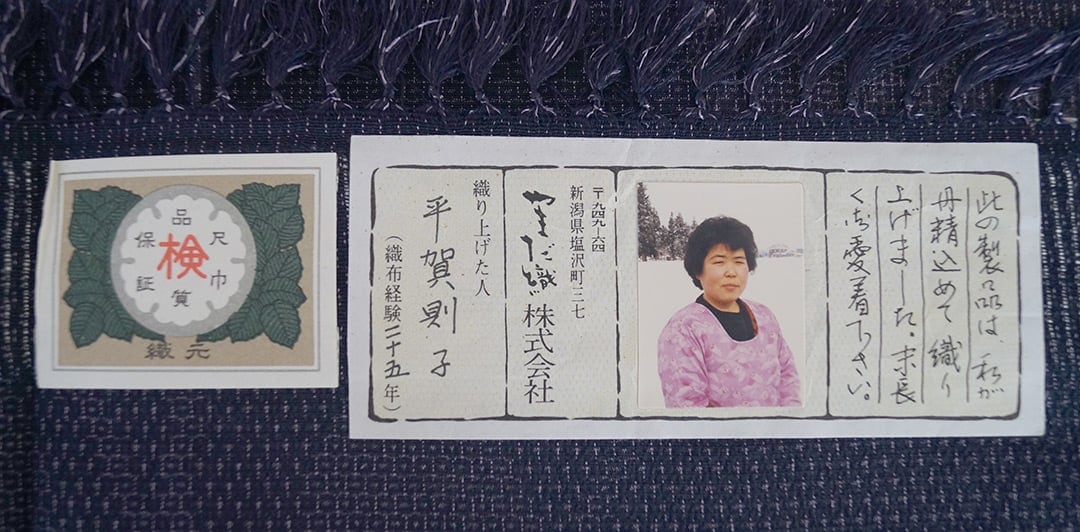 品質保証
尺巾
検
織元
此の製品は、私が
丹精込めて織り
上げました。末長
くご愛着下さい。
〒九四九-六四
新潟県塩沢町三七
やまだ織株式会社
織り上げた人
平賀則子
（織布経験二十五年）